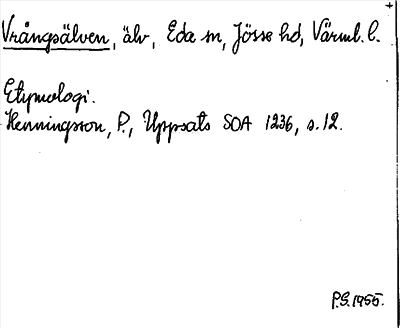 Vrångsälven, älv, Eda sn, Jösse hd, Värml. l.
Etymologi.
Henningsson, P., Uppsats SOA 1236, s. 12.
P.G. 1955.